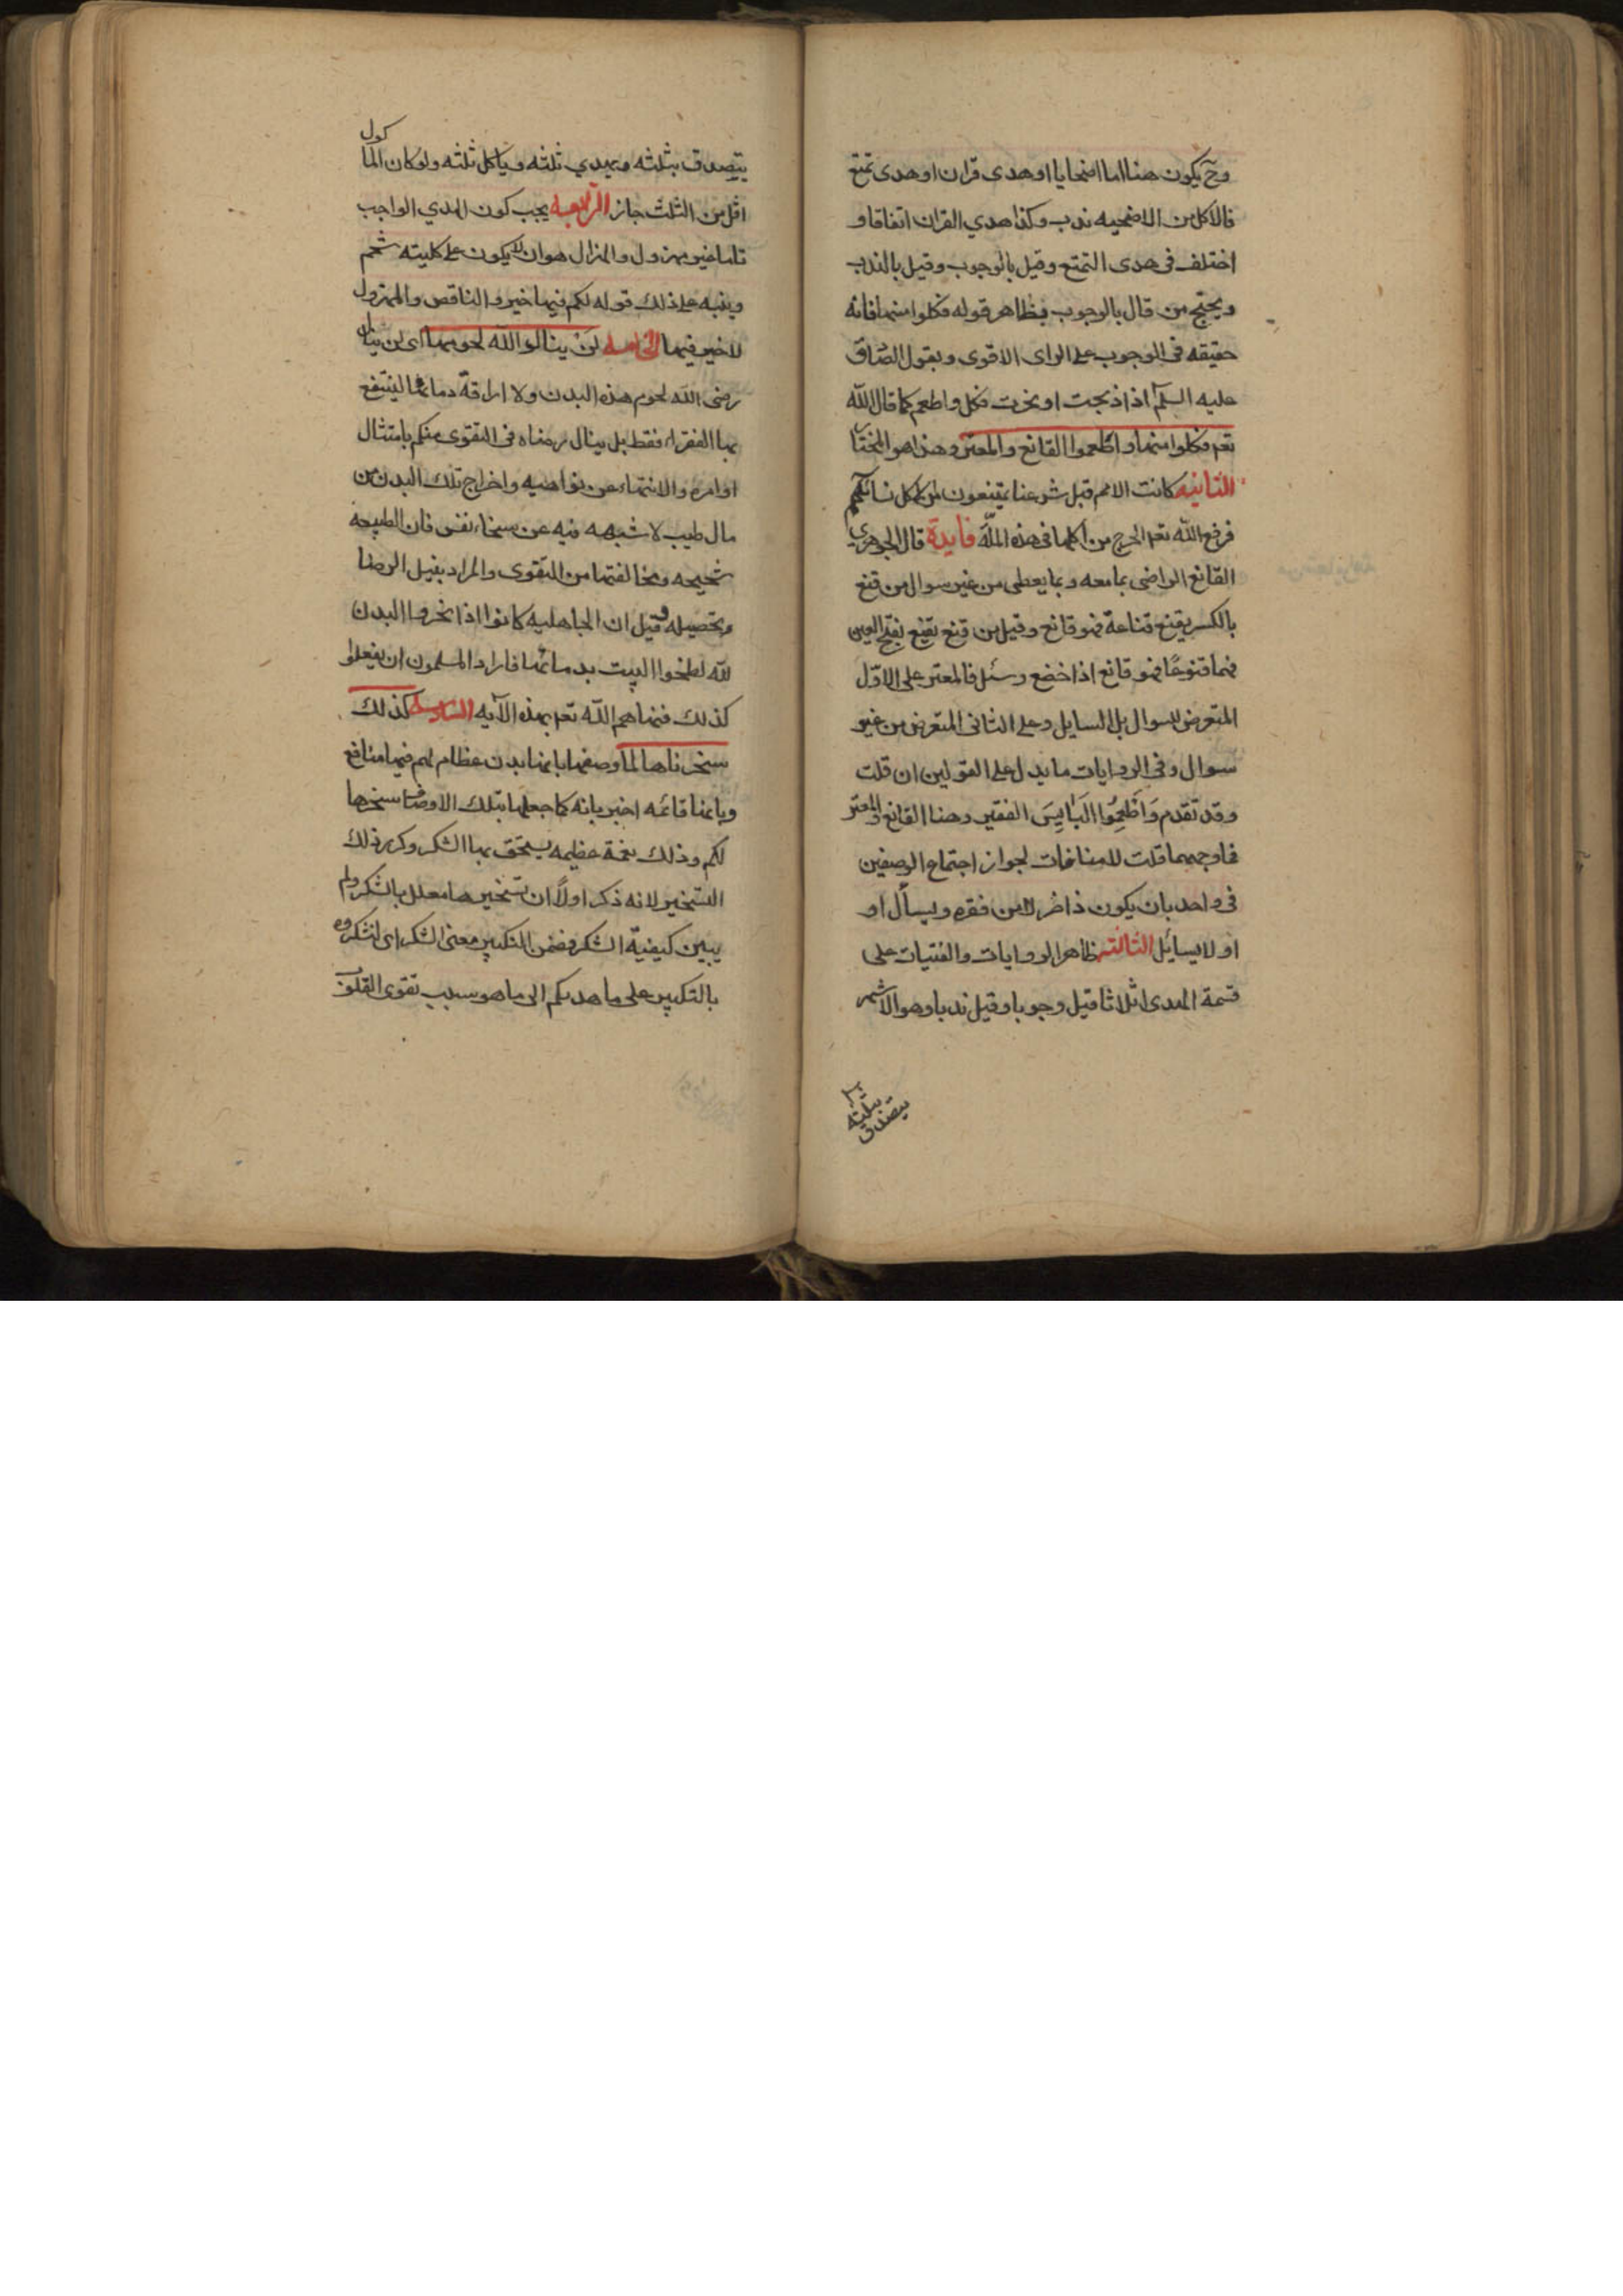 وح يكون هنا اما اضحايا او هدى قران او هدى تمتع
فالاكل من الاضحيه ندب وكذا هدي القران اتفاقا و
اختلف فى هدى التمتع وقيل بالوجوب وقيل بالندب
ويحتج من قال بالوجوب بظاهر قوله فكلوا منها فانه
حقيقه فى الوجوب على الراى الاقوى وبقول الصادق
عليه السلم اذا ذبحت او نحرت فكل واطعم كما قال الله
تعم فكلوا منها واطعموا القانع والمعتر وهذا هو المختار
الثانيه كانت الامم قبل شرعنا يمتنعون من اكل نسائكهم
فرفع الله تعم الحرج من اكلها فى هذه الملة فايدة قال الجوهري
القانع الراضى بما معه وبما يعطى من غير سوال من قنع
بالكسر يقنع قناعة فهو قانع وقيل من قنع يقنع بفتح العين
فيهما قنوعًا فهو قانع اذا خضع وسئل فالمعتر على الاوّل
المتعرض للسوال بل السايل وعلى الثانى المتعرض من غير
سوال وفى الروايات ما يدل على القولين ان قلت
وقد تقدم وَاَطْعِمُوا البَايِسَ الفقير وهنا القانع والمعتر
فما وجههما قلت للمنافات لجواز اجتماع الوصفين
فى واحد بان يكون ذا ضر من فقره ويسأل او
او لا يسايل الثالثه ظاهر الروايات والفتيات على
قسمة الهدى اثلاثا قيل وجوبا وقيل ندبا وهو الاشهر
يتصدق
بثلثه
يتصدق بثلثه ويهدي ثلثه وياكل ثلثه ولو كان الما
كول
اقل من الثلث جاز الرابعه يجب كون الهدي الواجب
تاما غير مهزول والهزال هو ان لا يكون على كليته شحم
وينبه على ذلك قوله لكم فيها خير والناقص والمهزول
لا خير فيها الخامسه لن ينالوا الله لحومها اى لن ينال
رضى الله لحوم هذه البدن ولا اراقة دمائها لينتفع
بها الفقراء فقط بل ينال رضاه فى التقوى منكم بامتثال
اوامره والانتهاء عن نواهيه واخراج تلك البدن من
مال طيب لا شبهه فيه عن سخاء نفس فان الطبيعه
شحيحه ومخالفتها من التقوى والمراد بنيل الرضا
وتحصيله وقيل ان الجاهليه كانوا اذا نحروا البدن
لله لطخوا البيت بدمائها فاراد المسلمون ان يفعلوا
كذلك فنهاهم الله تعم بهذه الآيه السادسه كذلك
سخرناها لما وصفها بانها بدن عظام لهم فيها منافع
وبانها قائمه اخبر بانه كما جعلها بتلك الاوصاف سخرها
لكم وذلك نعمة عظيمه يستحق بها الشكر وكرر ذلك
التسخير لانه ذكر اولًا ان تسخيرها معلل بالشكر ولم
يبين كيفية الشكر فضمن التكبير معنى الشكر اى لتشكروه
بالتكبير على ما هديكم الى ما هو سبب تقوى القلوب